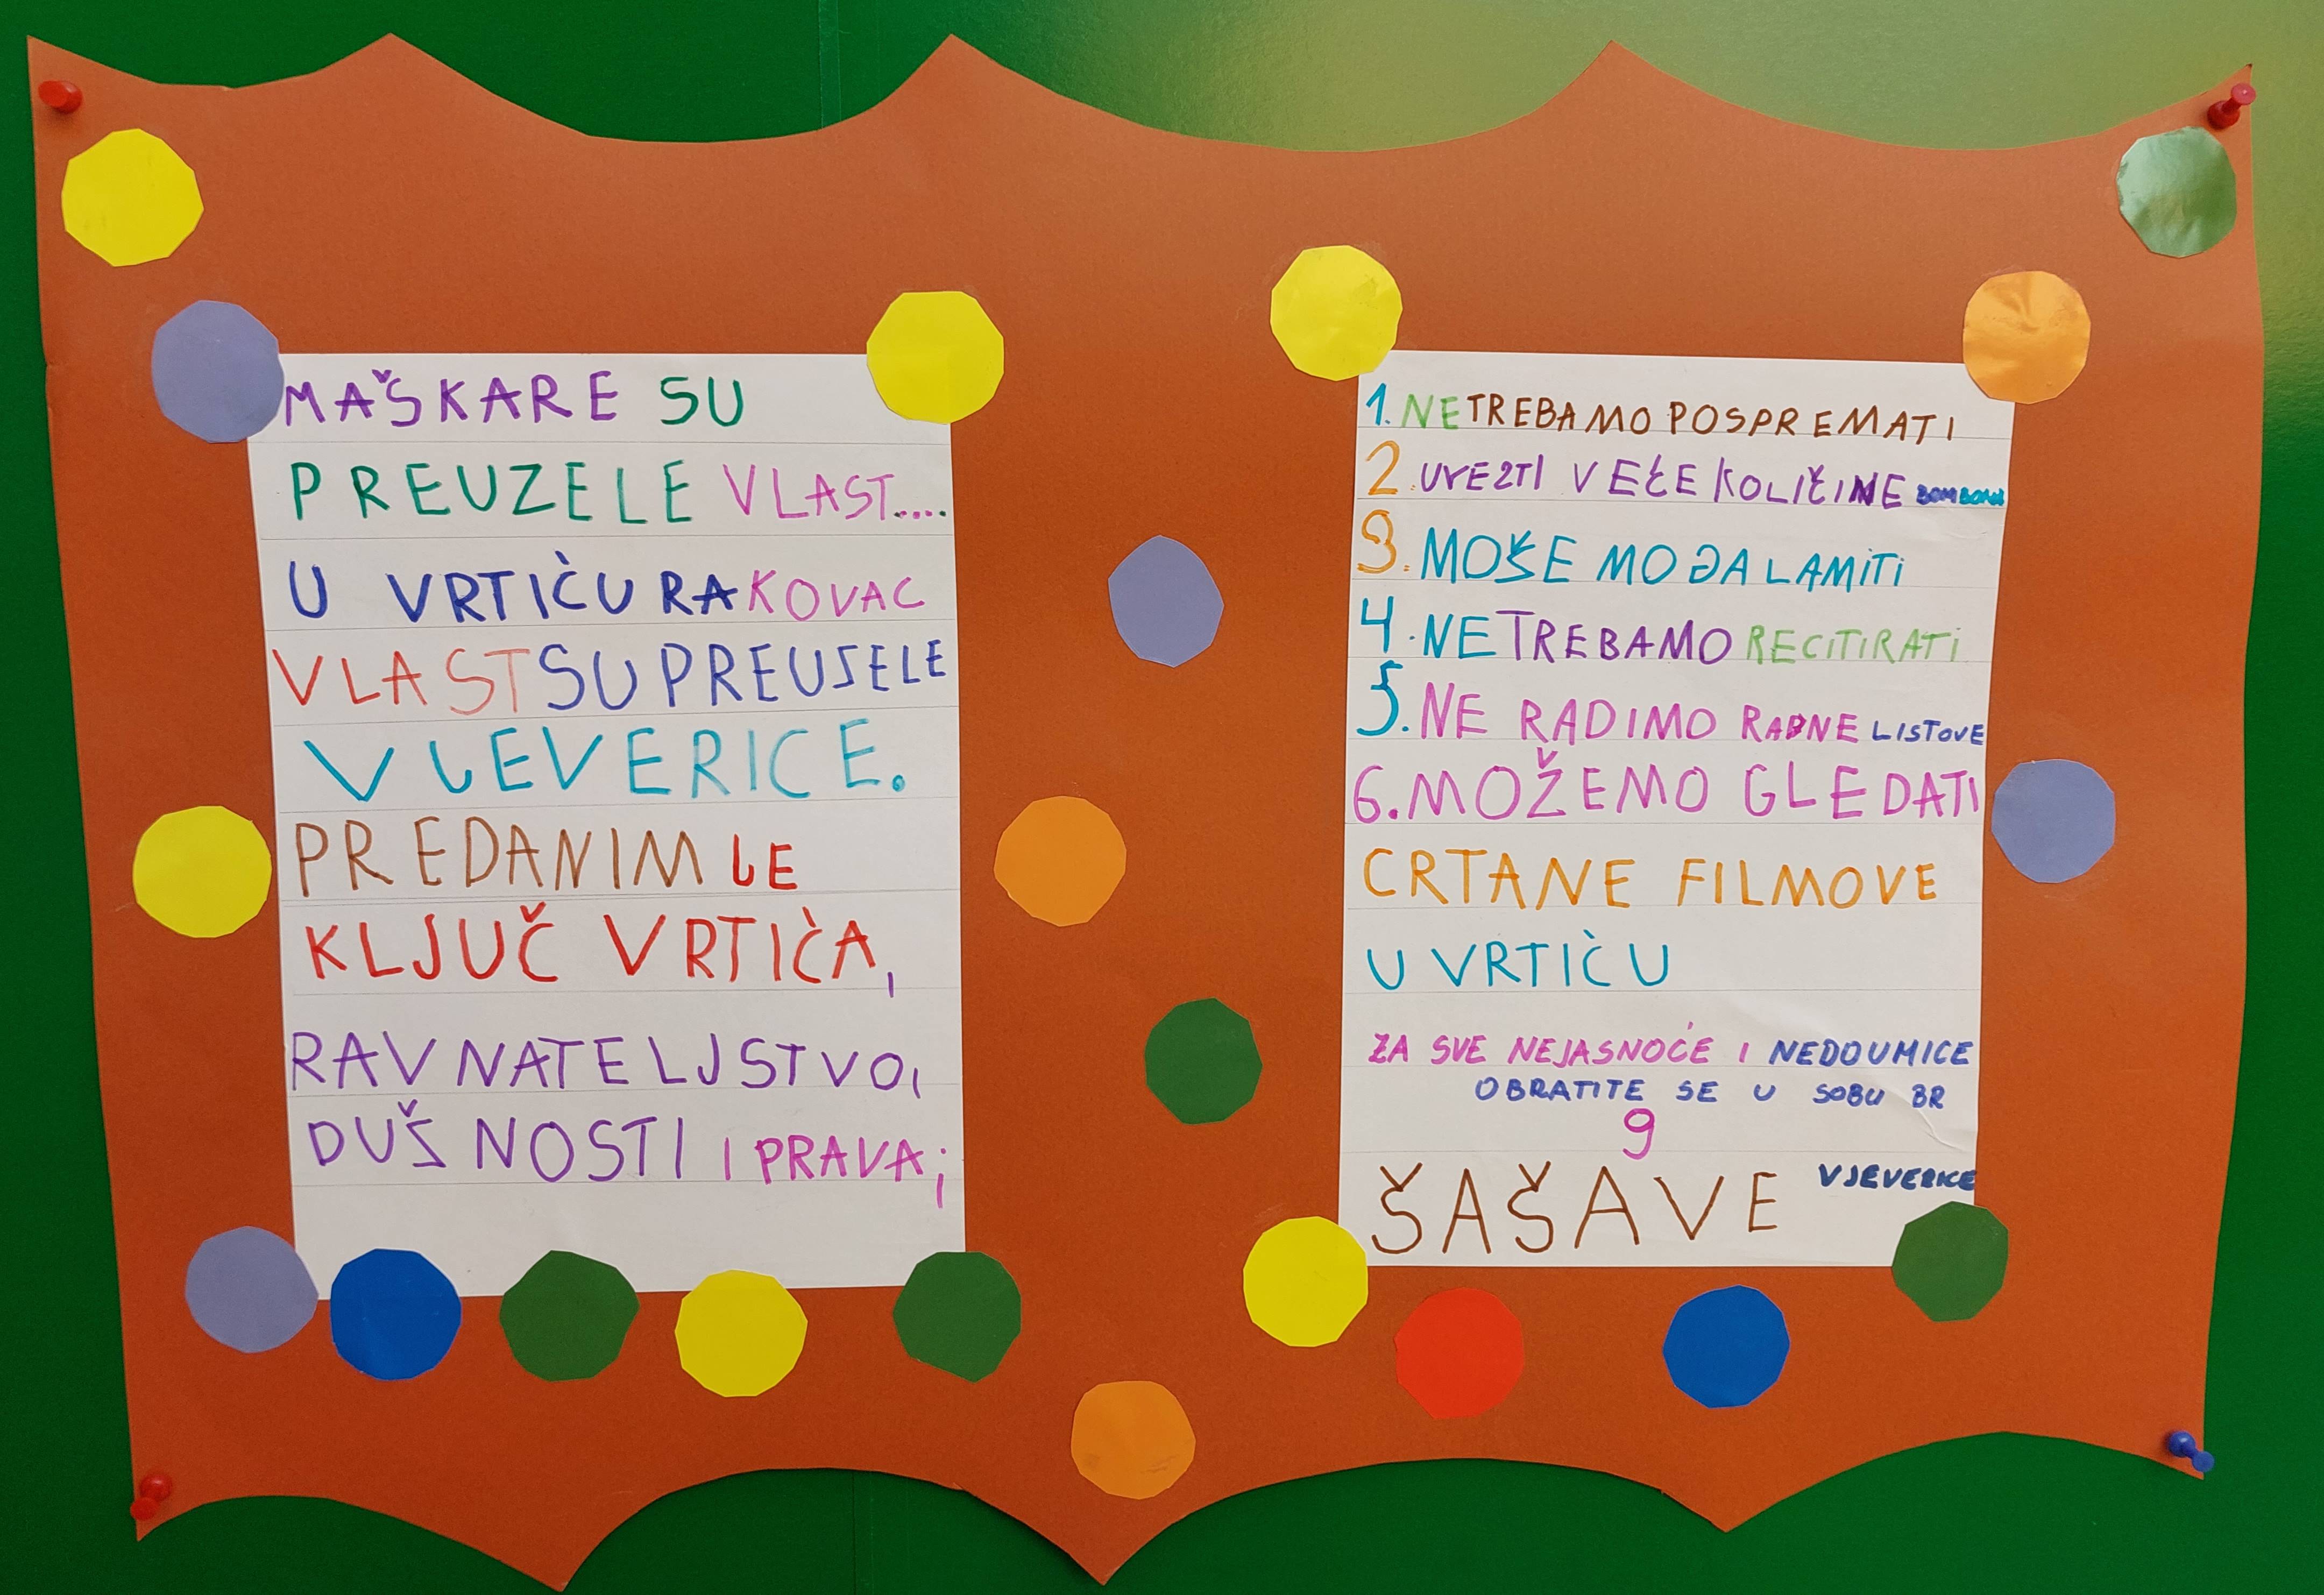 MAŠKARE SU
PREUZELE VLAST....
U VRTIĆU RAKOVAC
VLAST SU PREUSELE
VJEVERICE.
PREDANIM JE
KLJUČ VRTIĆA,
RAVNATELJSTVO,
DUŠNOSTI I PRAVA;
1. NETREBAMO POSPREMATI
2. UVEZTI VEĆE KOLIČINE BOMBONA
3. MOŠEMO GALAMITI
4. NETREBAMO RECITIRATI
5. NE RADIMO RADNE LISTOVE
6. MOŽEMO GLEDATI
CRTANE FILMOVE
U VRTIĆU
ZA SVE NEJASNOĆE I NEDOUMICE
OBRATITE SE U SOBU BR
9
ŠAŠAVE VJEVERICE